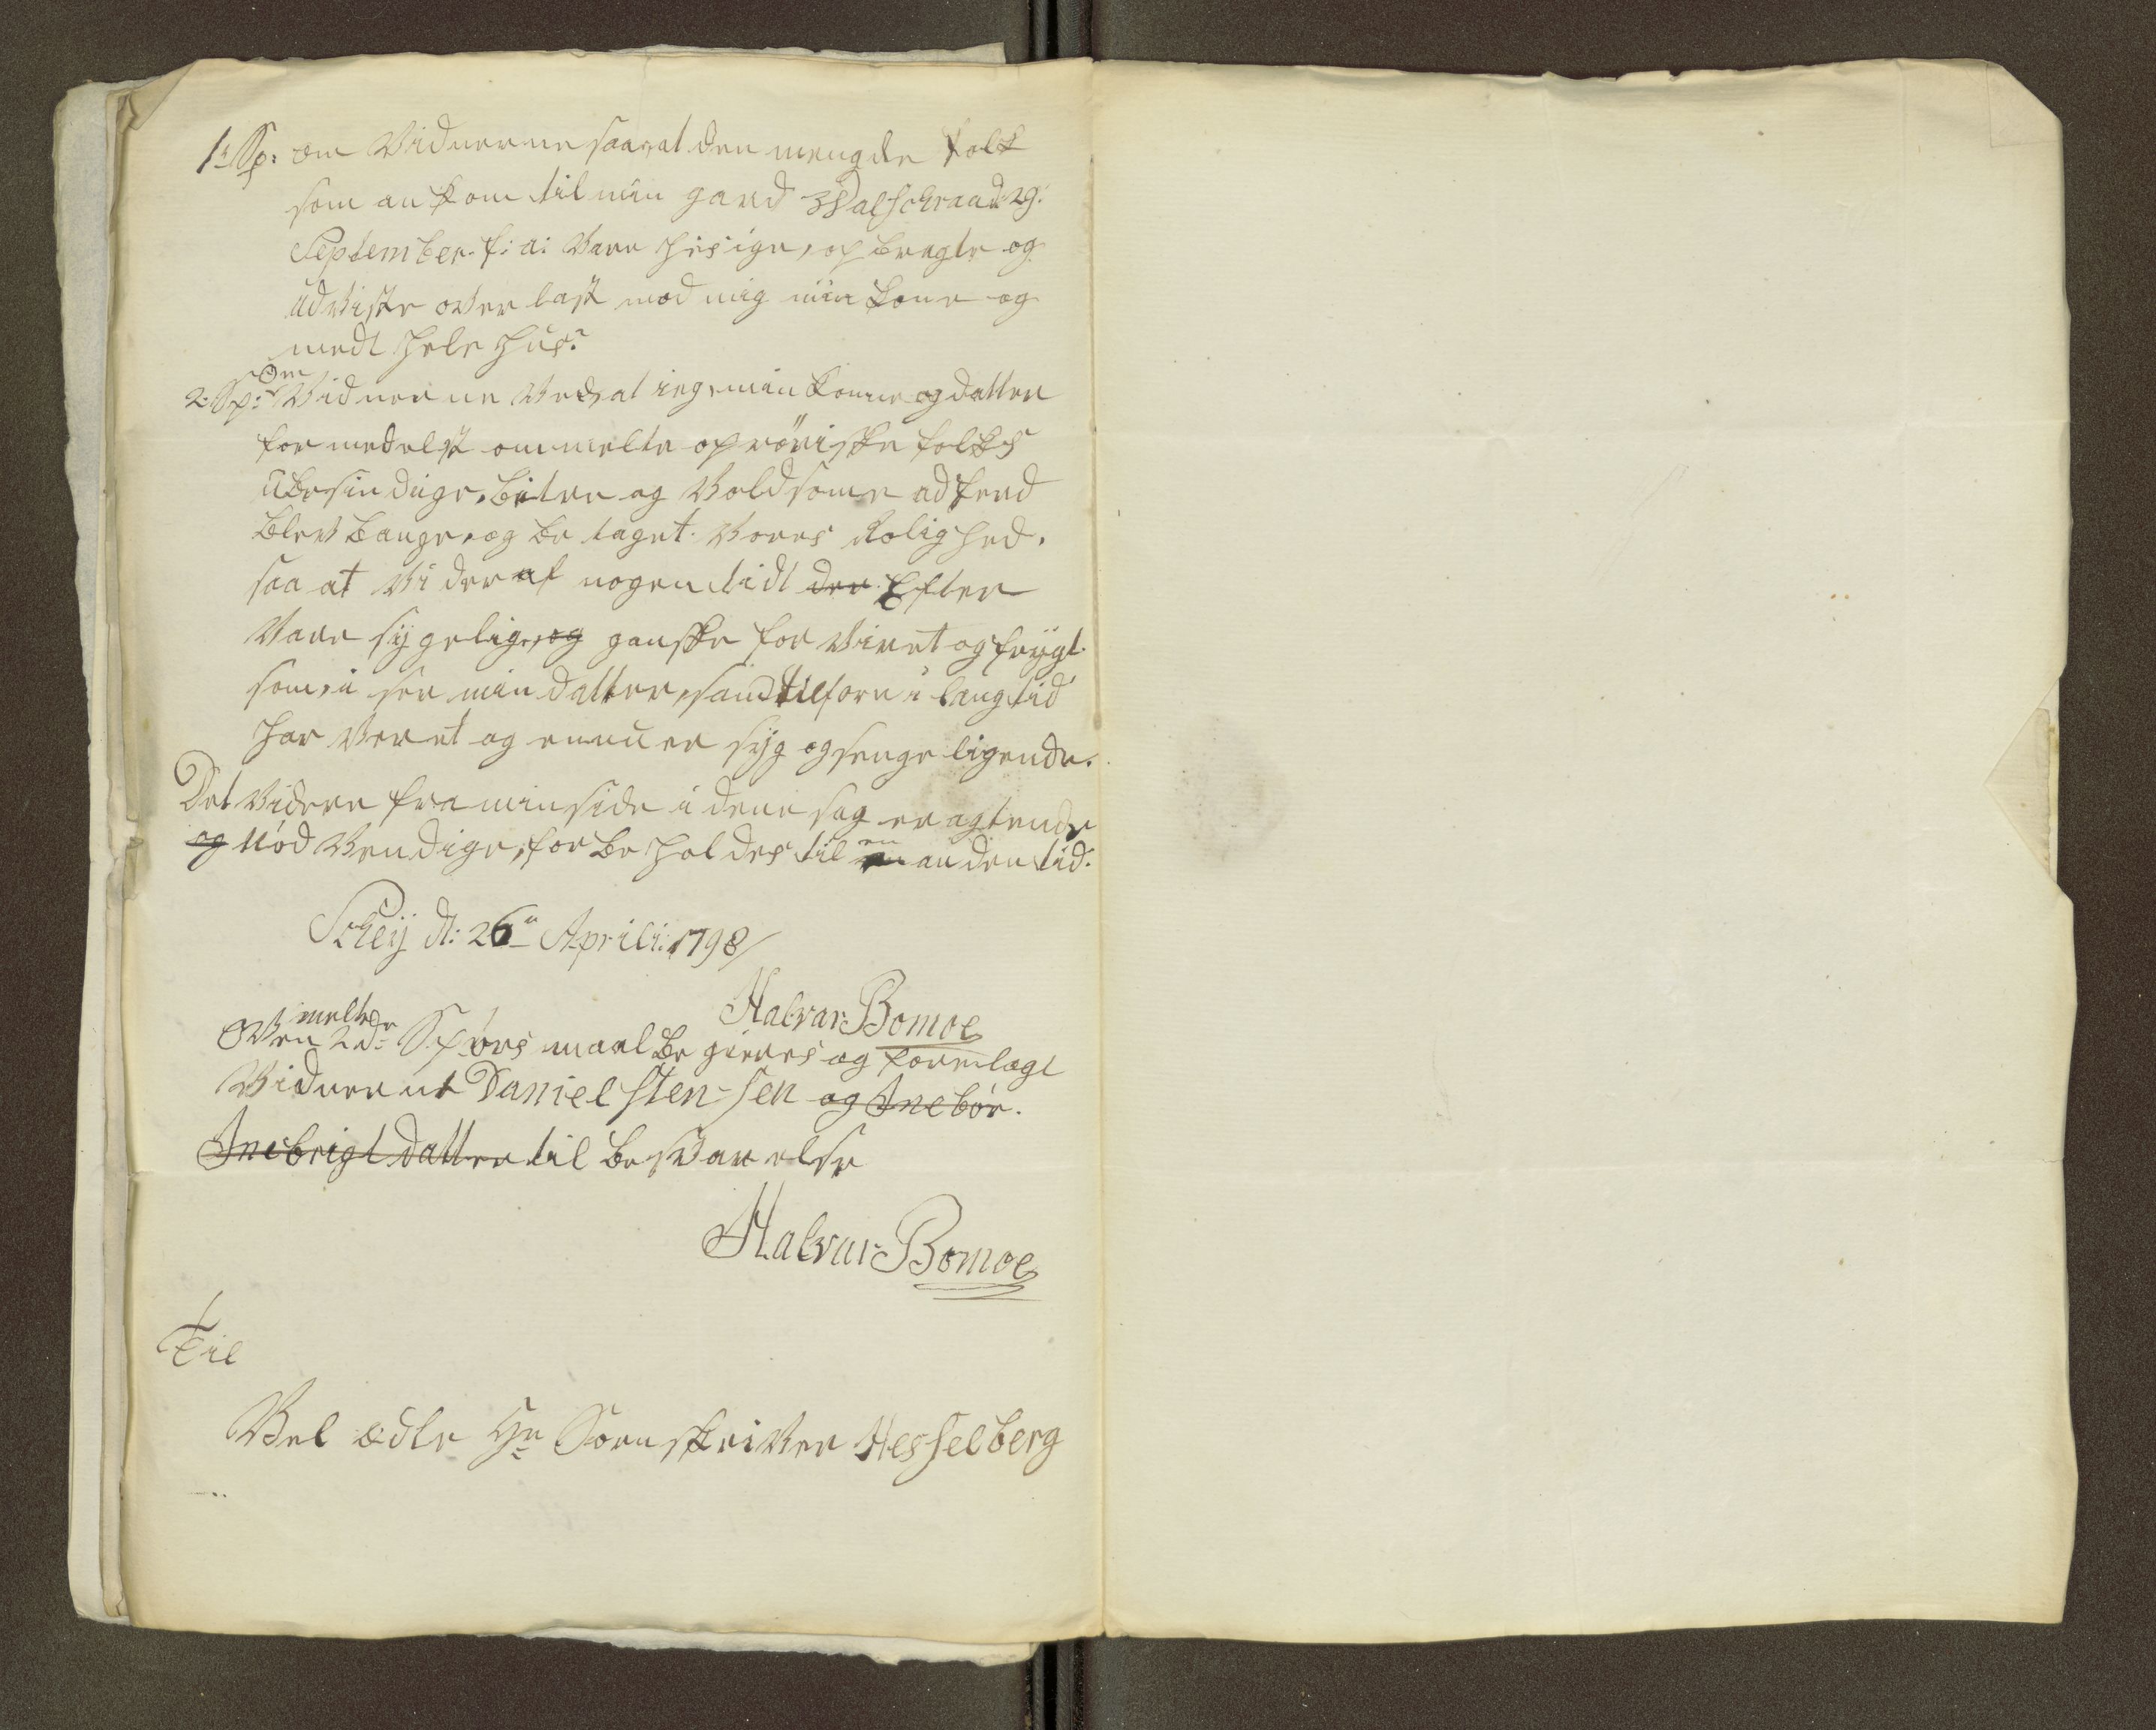 1: Sp: om Vidnerne saa, at den mengde folk
som ankom til min gaard Walschraad 29:
September f: a: Vare hisige, opbragte og
udViste overlast mod mig min kone og
medt hele hus?
2: Sp: Om Vidnerne Ved, at ieg, min konne og datter
formedelst ommelte oprøriske folks
ubesindige, bitere og Voldsomme adferd
blev bange, og betaget Vores Rolighed,
saa at Vi deraf nogen tidt der Efter
Vare sygelige, og ganske forVirret og frygt
som, i sær min datter, samt tilforn i lang tid
har Veret og ennu er syg og senge ligende.
Det Videre fra min side i dene sag eragtende
og Nød Vendige, forbeholdes til en anden tid.
Schey dt: 26u Aprili: 1798/
Halvar Bomoe
OVen melte 2de Spørs maal begieres og forrelagt
Vidnerne Daniel Sten-sen og Inebør.
Inebrigt datter til besVarelse
Halvar Bomoe
Til
Vel ædle Hr Sorenskriver Hesselberg